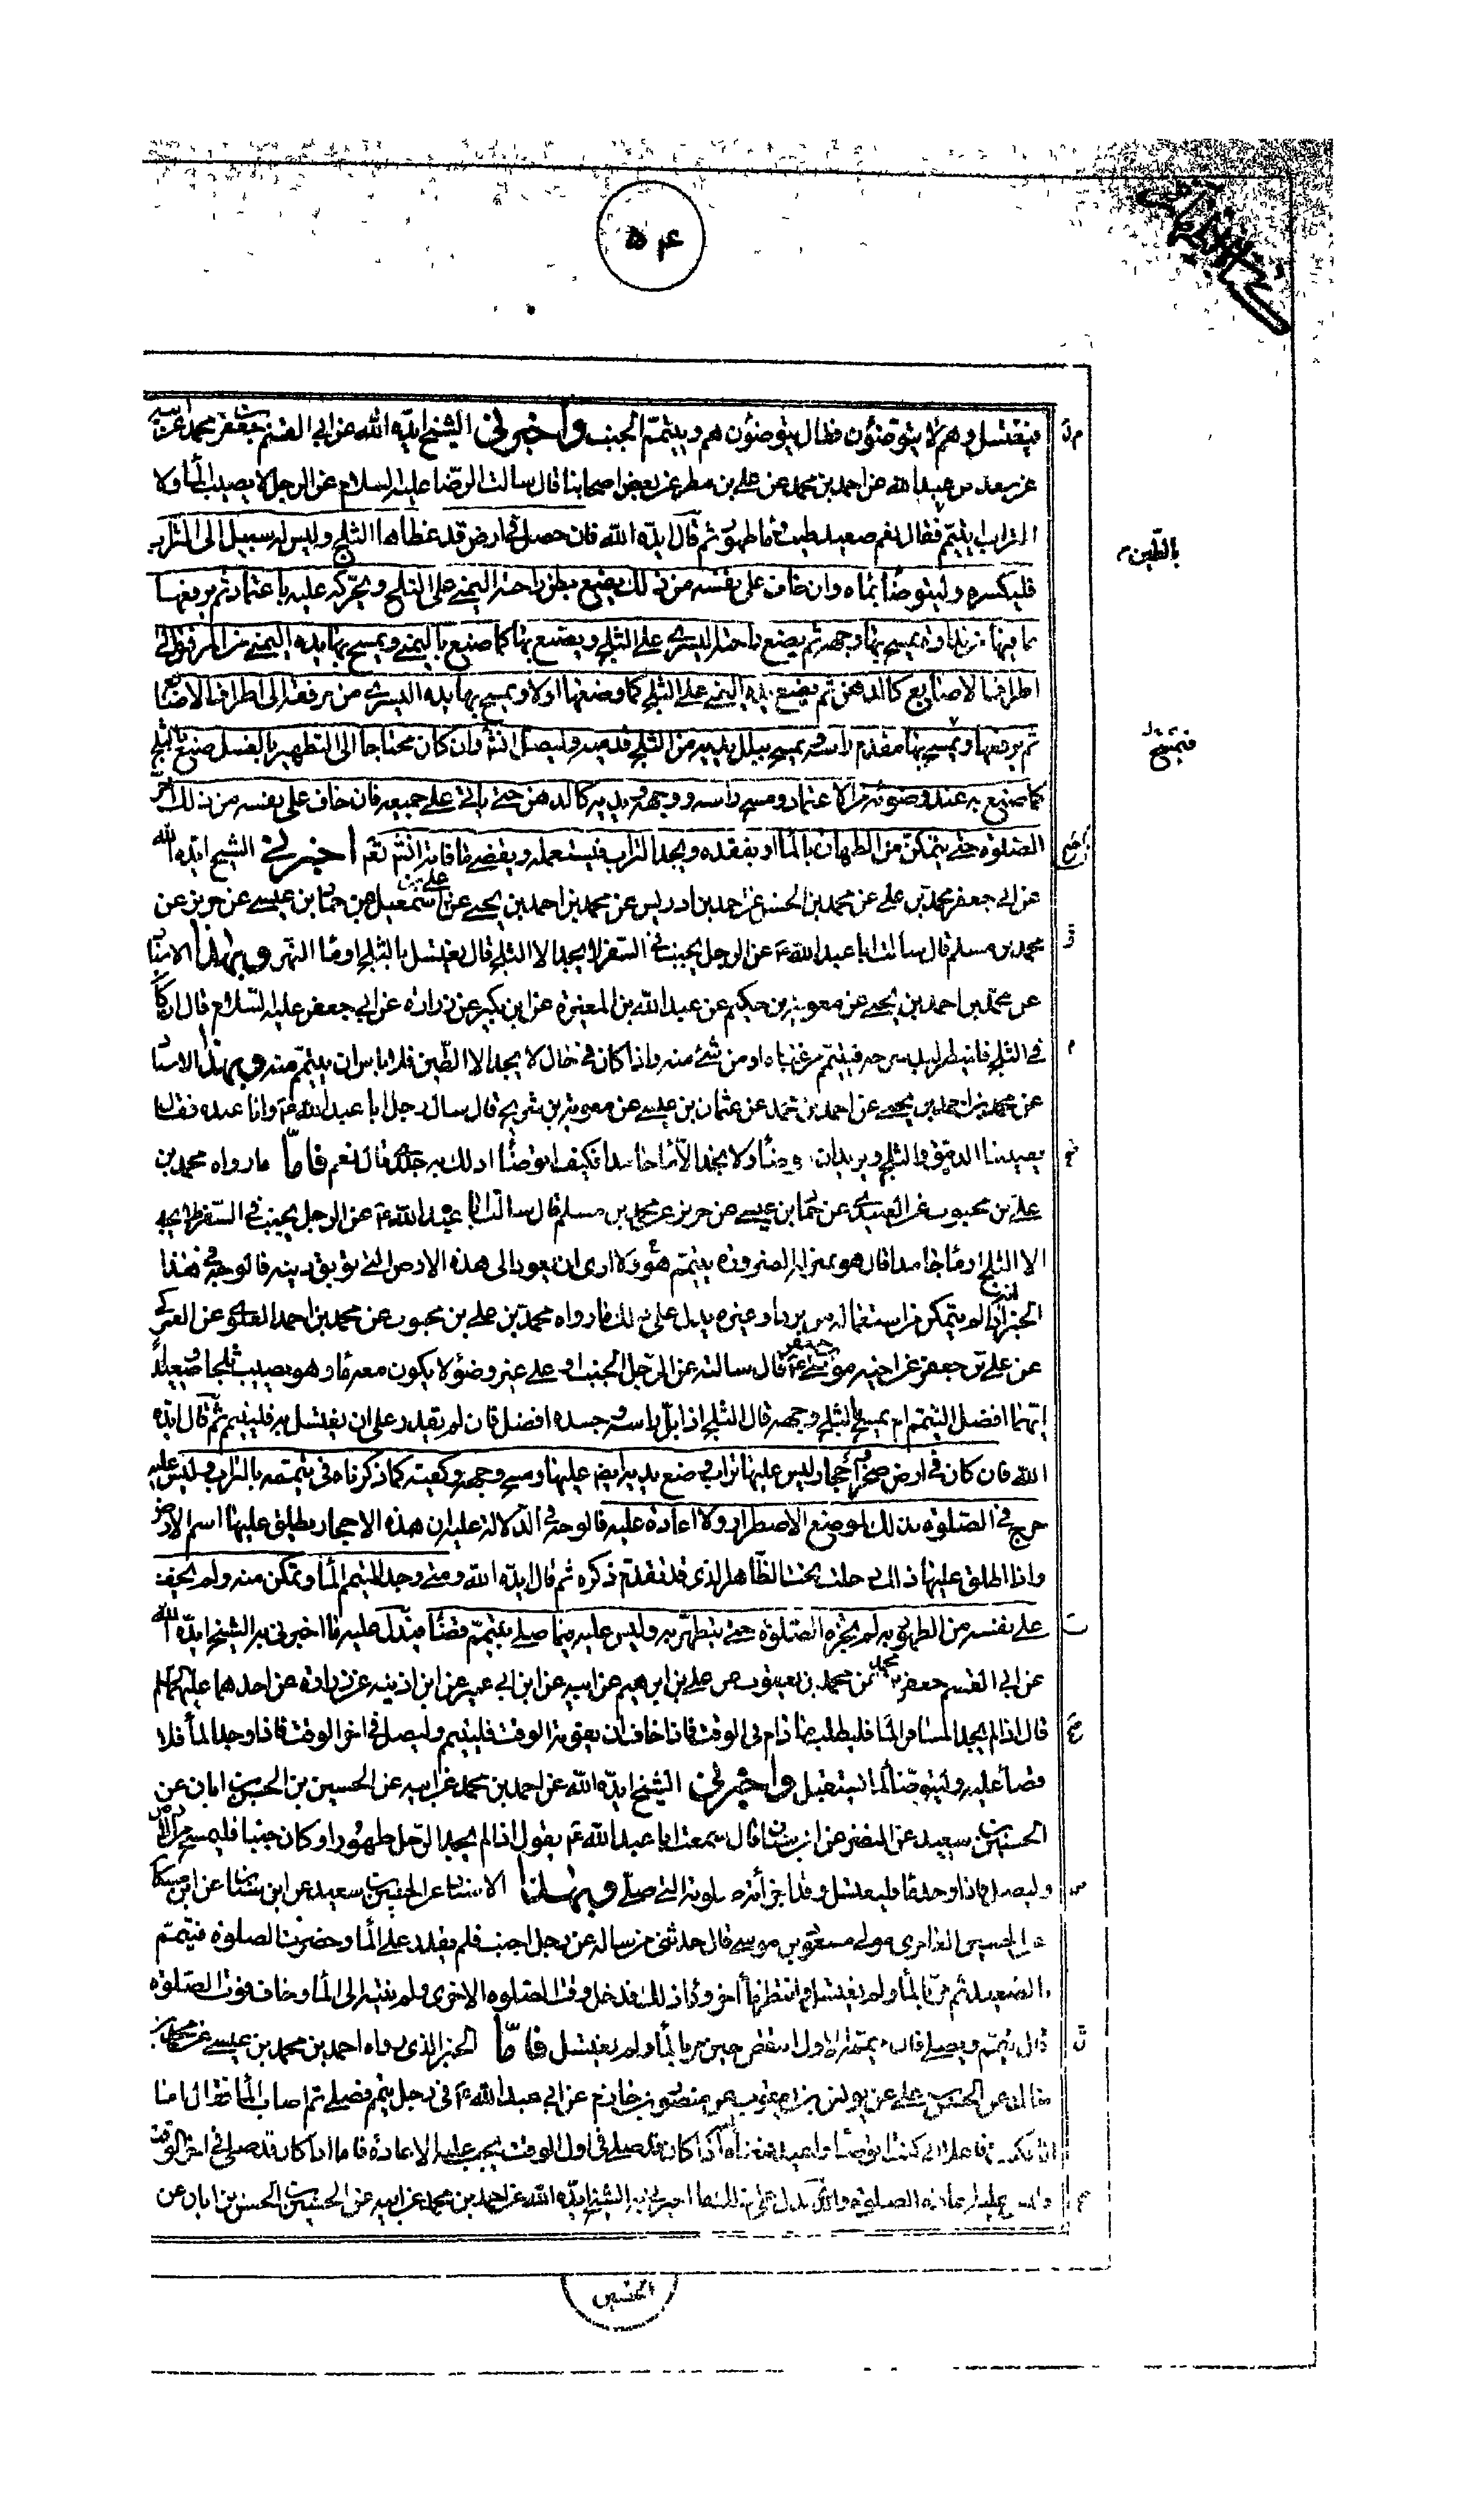 ۵۴
فيغتسل وهم لا يتوضئون فقال يتوضئون هم ويتيمم الجنب واخبرني الشيخ ايده الله عن ابي القسم جعفر بن محمد عن ابيه
عن سعد بن عبد الله عن احمد بن محمد عن علي بن مطر عن بعض اصحابنا قال سالت الرضا عليه السلام عن الرجل لا يصيب الماء ولا
التراب ايتيمم بالطين فقال نعم صعيد طيب وماء طهور ثم قال ايده الله فان حصل في ارض قد غطاها الثلج وليس له سبيل الى التراب
فليكسره وليتوضأ بمائه وان خاف على نفسه من ذلك يضع بطن راحته اليمنى على الثلج ويحركه عليه باعتماد ثم يرفعها
بما فيها من نداوة يمسح بها وجهه ثم يضع راحته اليسرى على الثلج ويصنع بها كما صنع باليمنى ويمسح بها يده اليمنى من المرفق الى
اطراف الاصابع كالدهن ثم يضع يده اليمنى على الثلج كما وضعها اولا ويمسح بها يده اليسرى من مرفقه الى اطراف الاصابع
ثم يرفعها ويمسح بها مقدم راسه ويمسح ببلل يديه من الثلج قدميه وليصل انشاء وان كان محتاجا الى التطهير بالغسل صنع بالثلج
كما صنع به عند وضوئه من الاعتماد ومسح راسه ووجهه ويديه كالدهن حتى ياتي على جميعه فان خاف على نفسه من ذلك اخر
الصلوة حتى يتمكن من الطهارة بالماء او يفقده ويجد التراب فيستعمله ويقضي ما فاته انشاء تعم اخبرني الشيخ ايده الله
عن ابي جعفر محمد بن علي عن محمد بن الحسن عن احمد بن ادريس عن محمد بن احمد بن يحيى عن علي بن اسمعيل عن حماد بن عيسى عن حريز عن
محمد بن مسلم قال سالت ابا عبد الله ع عن الرجل يجنب في السفر لا يجد الا الثلج قال يغتسل بالثلج او ماء النهر وبهذا الاسناد
عن محمد بن احمد بن يحيى عن معوية بن حكيم عن عبد الله بن المغيرة عن ابن بكير عن زرارة عن ابي جعفر عليه السلام قال ان كان
في الثلج فلينظر لبد سرجه فيتيمم من غباره او من شئ منه واذا كان في حال لا يجد الا الطين فلا باس ان يتيمم منه وبهذا الاسناد
عن محمد بن احمد بن يحيى عن احمد بن محمد عن عثمان بن عيسى عن معوية بن شريح قال سال رجل ابا عبد الله ع وانا عنده فقال
يصيبنا الدمق والثلج ونريد ان نتوضأ ولا نجد الا ماء جامدا فكيف اتوضأ ادلك به جلدي قال نعم فاما ما رواه محمد بن
علي بن محبوب عن العبيدي عن حماد بن عيسى عن حريز عن محمد بن مسلم قال سالت ابا عبد الله ع عن الرجل يجنب في السفر فلا يجد
الا الثلج او ماء جامدا قال هو بمنزلة الضرورة يتيمم ولا ارى ان يعود الى هذه الارض التي توبق دينه فالوجه في هذا
الخبر انه اذا لم يتمكن من استعماله من برد او غيره يدل على ذلك ما رواه محمد بن علي بن محبوب عن محمد بن احمد العلوي عن العمركي
عن علي بن جعفر عن اخيه موسى بن جعفر ع قال سالته عن الرجل الجنب او على غير وضوء لا يكون معه ماء وهو يصيب ثلجا وصعيدا
ايهما افضل التيمم ام يمسح بالثلج وجهه قال الثلج اذا بل راسه وجسده افضل فان لم يقدر على ان يغتسل به فليتيمم ثم قال ايده
الله فان كان في ارض صخر واحجار وليس عليها تراب وضع يديه ايضا عليها ومسح وجهه وكفيه كما ذكرناه في تيممه بالتراب وليس عليه
حرج في الصلوة بذلك لموضع الاضطرار ولا اعادة عليه فالوجه في الدلالة عليه ان هذه الاحجار يطلق عليها اسم الارض
واذا اطلق عليها ذلك دخلت تحت الظاهر الذي قد تقدم ذكره ثم قال ايده الله ومتى وجد المتيمم الماء وتمكن منه ولم يخف
على نفسه من الطهور به لم يجزه الصلوة حتى يتطهر به وليس عليه فيما صلى بتيمم قضاء فيدل عليه ما اخبرني به الشيخ ايده الله
عن ابي القسم جعفر بن محمد عن محمد بن يعقوب عن علي بن ابرهيم عن ابيه عن ابن ابي عمير عن ابن اذينه عن زرارة عن احدهما عليهما السلم
قال اذا لم يجد المسافر الماء فليطلب ما دام في الوقت فاذا خاف ان يفوته الوقت فليتيمم وليصل في اخر الوقت فاذا وجد الماء فلا
قضاء عليه وليتوضأ لما يستقبل واخبرني الشيخ ايده الله عن احمد بن محمد عن ابيه عن الحسين بن الحسن بن ابان عن
الحسين بن سعيد عن النضر عن ابن سنان قال سمعت ابا عبد الله ع يقول اذا لم يجد الرجل طهورا وكان جنبا فليمسح من الارض
وليصل فاذا وجد ماء فليغتسل وقد اجزأته صلوته التي صلى وبهذا الاسناد عن الحسين بن سعيد عن ابن سنان عن ابن مسكان
عن الحسين العامري مولى مسعود بن موسى قال حدثني من ساله عن رجل اجنب فلم يقدر على الماء وحضرت الصلوة فتيمم
بالصعيد ثم مر بالماء ولم يغتسل وانتظر ماء اخر وراء ذلك فدخل وقت الصلوة الاخرى ولم ينته الى الماء وخاف فوت الصلوة
قال يتيمم ويصلي فان تيممه الاول انتقض حين مر بالماء ولم يغتسل فاما الخبر الذي رواه احمد بن محمد بن عيسى عن محمد بن
خالد عن الحسن بن علي عن يونس بن يعقوب عن منصور بن حازم عن ابي عبد الله ع في رجل تيمم فصلى ثم اصاب الماء فقال اما انا
فاني كنت اتوضأ واعيد فمعناه اذا كان قد صلى في اول الوقت يجب عليه الاعادة فاما اذا كان قد صلى في اخر الوقت
عليه اعادة الصلوة والذي يدل على ذلك ما اخبرني به الشيخ ايده الله عن احمد بن محمد عن ابيه عن الحسين بن الحسن بن ابان عن
بالطين
فيمسح
الحسين